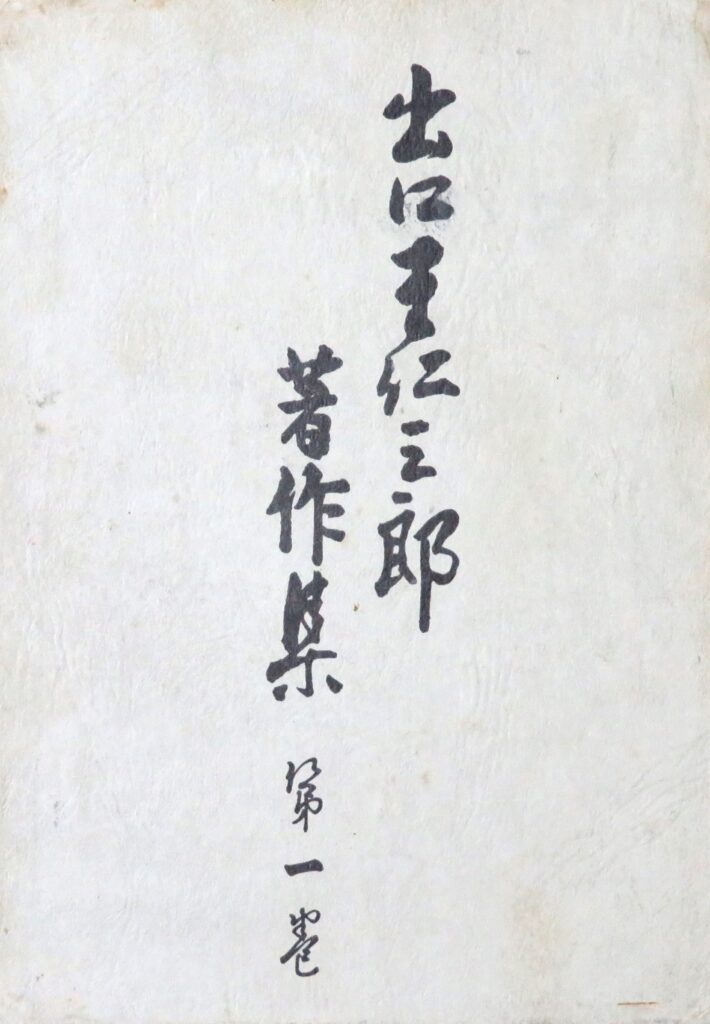 出口王仁三郎
著作集 第一巻